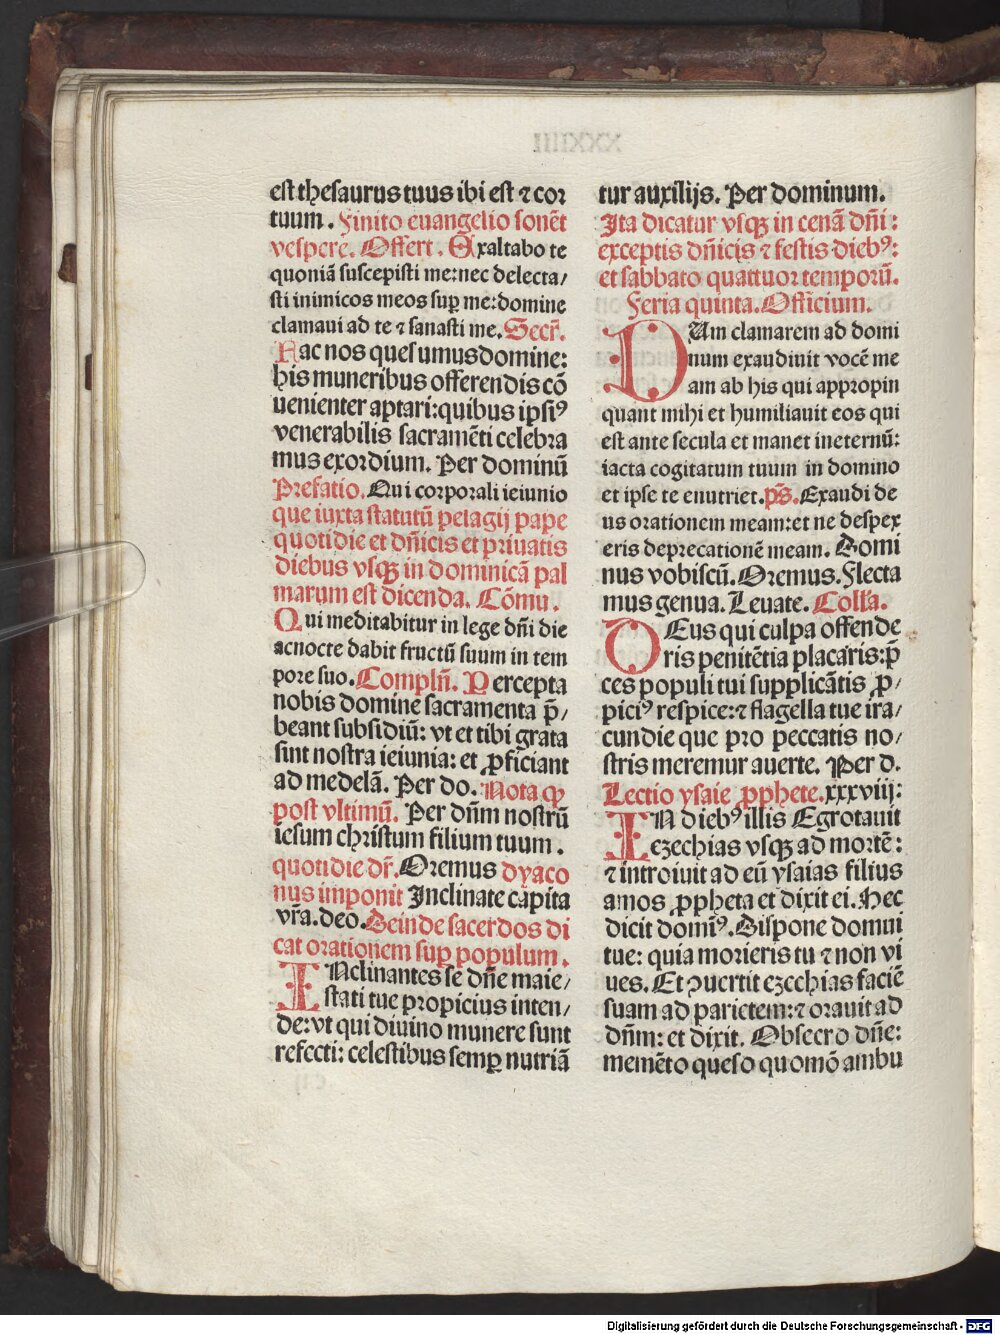 est thesaurus tuus ibi est ⁊ cor
tuum. Finito euangelio sonēt
vespere. Offert. Exaltabo te
quoniā suscepisti me: nec delecta/
sti inimicos meos suꝑ me: domine
clamaui ad te ⁊ sanasti me. Secr̄.
Hac nos quesumus domine:
his muneribus offerendis cō
uenienter aptari: quibus ipsiꝰ
venerabilis sacramēti celebra
mus exordium. Per dominū
Prefatio. Qui corporali ieiunio
que iuxta statutū pelagij pape
quotidie et dn̄icis et priuatis
diebus vsqꝫ in dominicā pal
marum est dicenda. Cōmu.
Qui meditabitur in lege dn̄i die
ac nocte dabit fructū suum in tem
pore suo. Compln̄. Percepta
nobis domine sacramenta p̄/
beant subsidiū: vt et tibi grata
sint nostra ieiunia: et ꝓficiant
ad medelā. Per do. Nota qꝫ
post vltimū. Per dn̄m nostrū
iesum christum filium tuum.
quotidie dr̄. Oremus dyaco
nus imponit Inclinate capita
vr̄a. deo. Deinde sacerdos di
cat orationem suꝑ populum.
INclinantes se dn̄e maie/
stati tue propicius inten/
de: vt qui diuino munere sunt
refecti: celestibus semꝑ nutriā
tur auxilijs. Per dominum.
Ita dicatur vsqꝫ in cenā dn̄i:
exceptis dn̄icis ⁊ festis diebꝰ:
et sabbato quattuor temporū.
Feria quinta. Officium.
DUm clamarem ad domi
num exaudiuit vocē me
am ab his qui appropin
quant mihi et humiliauit eos qui
est ante secula et manet in eternū:
iacta cogitatum tuum in domino
et ipse te enutriet. ps̄. Exaudi de
us orationem meam: et ne despex
eris deprecationē meam. Domi
nus vobiscū. Oremus. Flecta
mus genua. Leuate. Colla.
DEus qui culpa offende
ris penitētia placaris: p̄
ces populi tui supplicātis ꝓ/
piciꝰ respice: ⁊ flagella tue ira/
cundie que pro peccatis no/
stris meremur auerte. Per d.
Lectio ysaie ꝓphete. xxxviij:
IN diebꝰ illis Egrotauit
ezechias vsqꝫ ad mortē:
⁊ introiuit ad eū ysaias filius
amos ꝓpheta et dixit ei. Hec
dicit domiꝰ. Dispone domui
tue: quia morieris tu ⁊ non vi
ues. Et ꝯuertit ezechias faciē
suam ad parietem: ⁊ orauit ad
dn̄m: et dixit. Obsecro dn̄e:
memēto queso quomō ambu
Digitalisierung gefördert durch die Deutsche Forschungsgemeinschaft - DFG